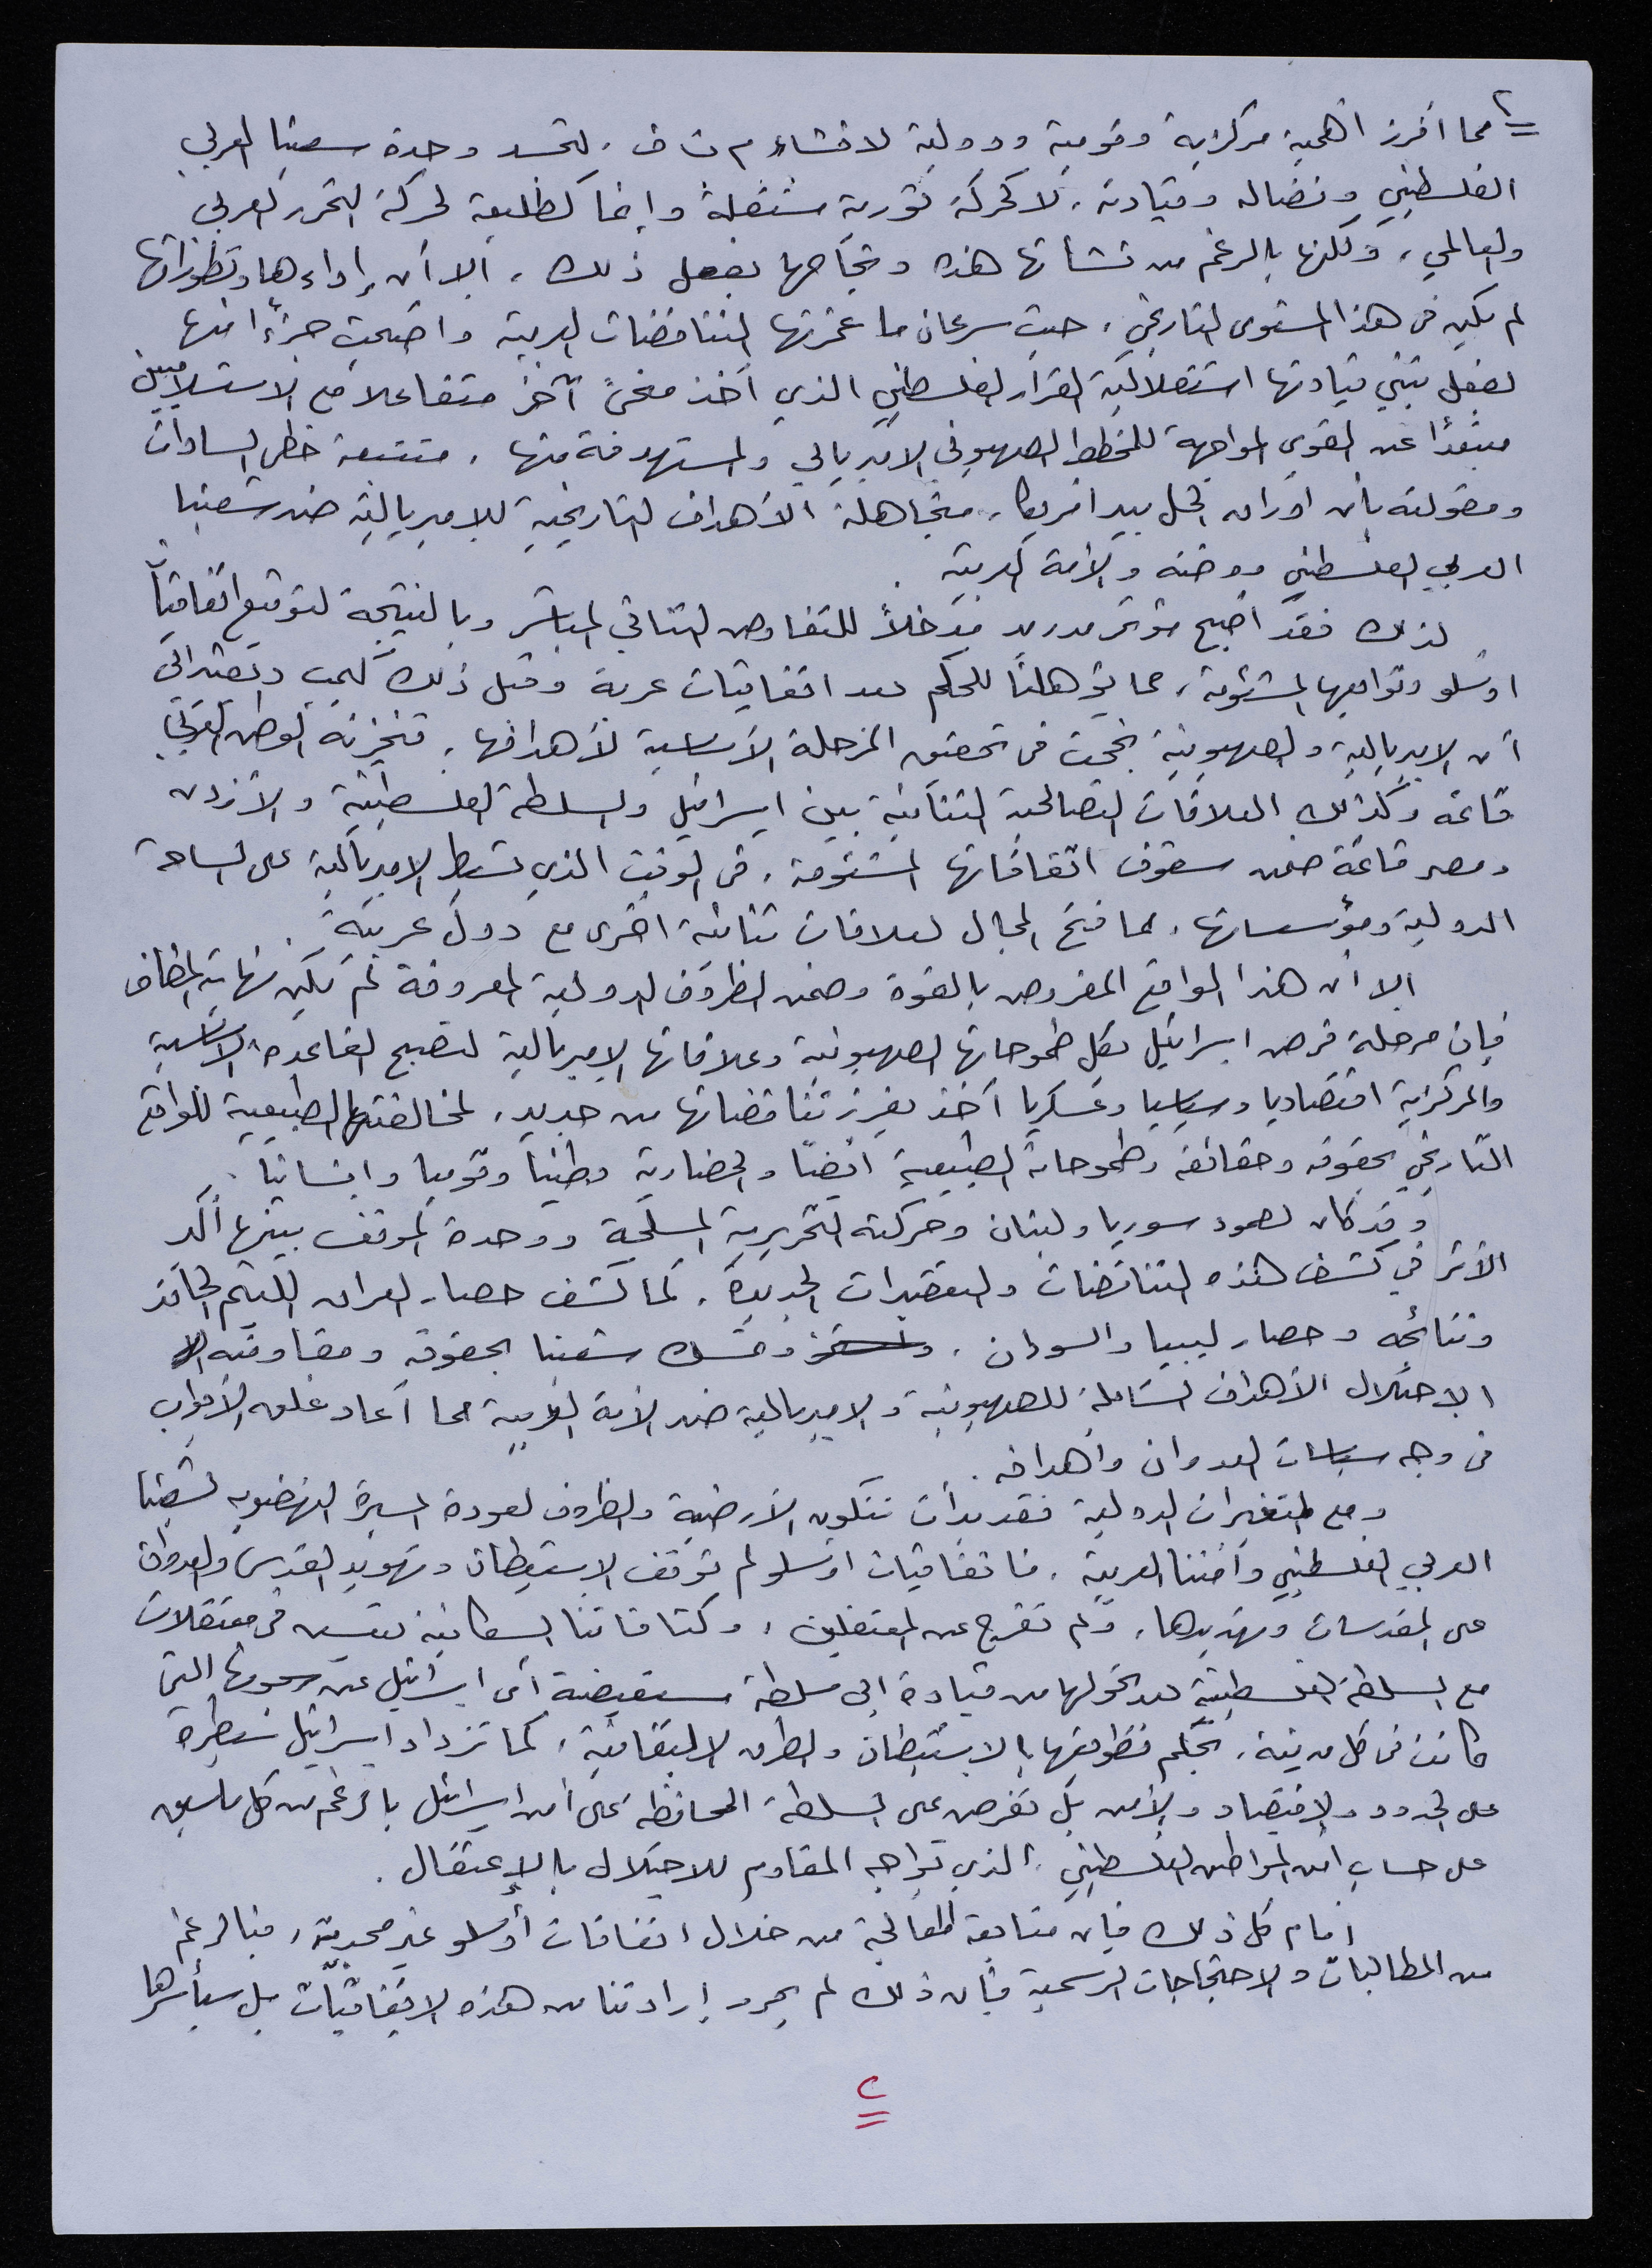 ٢
مما افرز اهمية مركزية وقومية ودولية لانشاء م ت ف، لتجسد وحدة شعبنا العربي
الفلسطيني ونضاله وقيادته، لا كحركة ثورية مستقلة وإنما كطليعة لحركة التحرر العربي
والعالمي، ولكنها بالرغم من نشأتها هذه ونجاحها بفعل ذلك، الا أن إداءها وتطوراتها
لم يكن في هذا المستوى التاريخي، حيث سرعان ما غمرتها التناقضات العربية واضحت جزءًا منها
بفعل تبني قيادتها استقلالية القرار الفلسطيني الذي أخذ منحىً آخر متفاعلا مع الاستسلاميين
مبتعدًا عن القوى المواجهة للمخطط الصهيوني الامبريالي والمستهدفة منها، متتبعة خطى السادات
ومقولته بأن اوراق الحل بيد امريكا، متجاهلة الأهداف التاريخية للامبريالية ضد شعبنا
العربي الفلسطيني ووطنه والأمة العربية.
لذلك فقد اصبح مؤتمر مدريد مدخلاً للتفاوض الثنائي المباشر وبالنتيجة لتوقيع اتفاقيات
اوسلو وتوابعها المشئومة، مما يؤهلنا للحكم بعد اتفاقيات عربة وقبل ذلك كامب
أن الامبريالية والصهيونية نجحت في تحقيق المرحلة الأساسية لأهدافها، فتجزئة الوطن العربي
قائمة وكذلك العلاقات التصالحية الثنائية بين اسرائيل والسلطة الفلسطينية والأردن
ومصر قائمة ضمن سقوف اتفاقاتها المشئومة، في الوقت الذي تسيطر الامبريالية على الساحة
الدولية ومؤسساتها، مما فتح المجال لعلاقات ثنائية اخرى مع دول عربية.
الا أن هذا الواقع المفروض بالقوة وضمن الظروف الدولية المعروفة لم يكن نهاية المطاف
فإن مرحلة فرض اسرائيل بكل طموحاتها الصهيونية وعلاقاتها الامبريالية لتصبح القاعدة الاساسية
والمركزية اقتصاديا وسياسيا وعسكريا أخذ يفرز تناقضاتها من جديد، لمخالفتها الطبيعية للواقع
التاريخي بحقوقه وحقائقه وطموحاته الطبيعية ايضًا والحضارية وطنيا وقوميا وانسانيا.
وقد كان لصمود سوريا ولبنان وحركته التحريرية المسلحة ووحدة الموقف بينهما أكبر
الأثر في كشف هذه التناقضات والتعقيدات الجديدة، كما كشف حصار العراق اللئيم الحاقد
ونتائجه وحصار ليبيا والسودان، وتمسك شعبنا بحقوقه ومقاومته
الاحتلال الأهداف الشاملة للصهيونية والامبريالية ضد الأمة العربية مما أعاد غلق الأبواب
في وجه سياسات العدوان واهدافه.
ومع المتغيرات الدولية فقد بدأت تتكون الأرضية والظروف لعودة المسيرة النهضوية لشعبنا
العربي الفلسطيني وأمتنا العربية، فاتفاقيات اوسلو لم توقف الاستيطان وتهويد القدس والعدوان
على المقدسات وتهديدها، ولم تفرج عن المعتقلين، وكثافاتنا السكانية تعيش في معتقلات
مع السلطة الفلسطينية بعد تحولها من قيادة الى سلطة مستعيضة أي اسرائيل عن سجونها التي
كانت في كل مدينة، بحكم تطويقها بالاستيطان والطرق الالتفافية، كما تزداد اسرائيل سيطرة
على الحدود والاقتصاد والأمن بل تفرض على السلطة المحافظة على أمن اسرائيل بالرغم من كل ما سبق
على حساب أمن المواطن الفلسطيني، الذي تواجه المقاوم للاحتلال بالإعتقال.
أمام كل ذلك فإن متابعة المعالجة من خلال اتفاقات أوسلو غير مجدية، فبالرغم
من المطالبات والاحتجاجات الرسمية فإن ذلك لم يحرر إرادتنا من هذه الاتفاقيات بل سيأسرها
٢